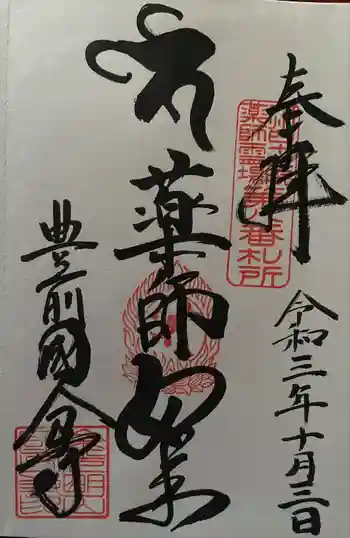 奉拝
令和三年十月三日
薬師如来
豊前國分寺
薬師霊場第
番札所